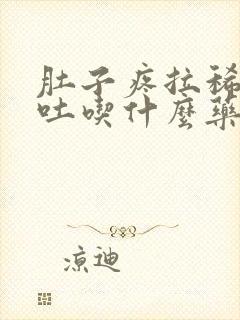 肚子疼拉稀
吐喫什麼藥
涼迪